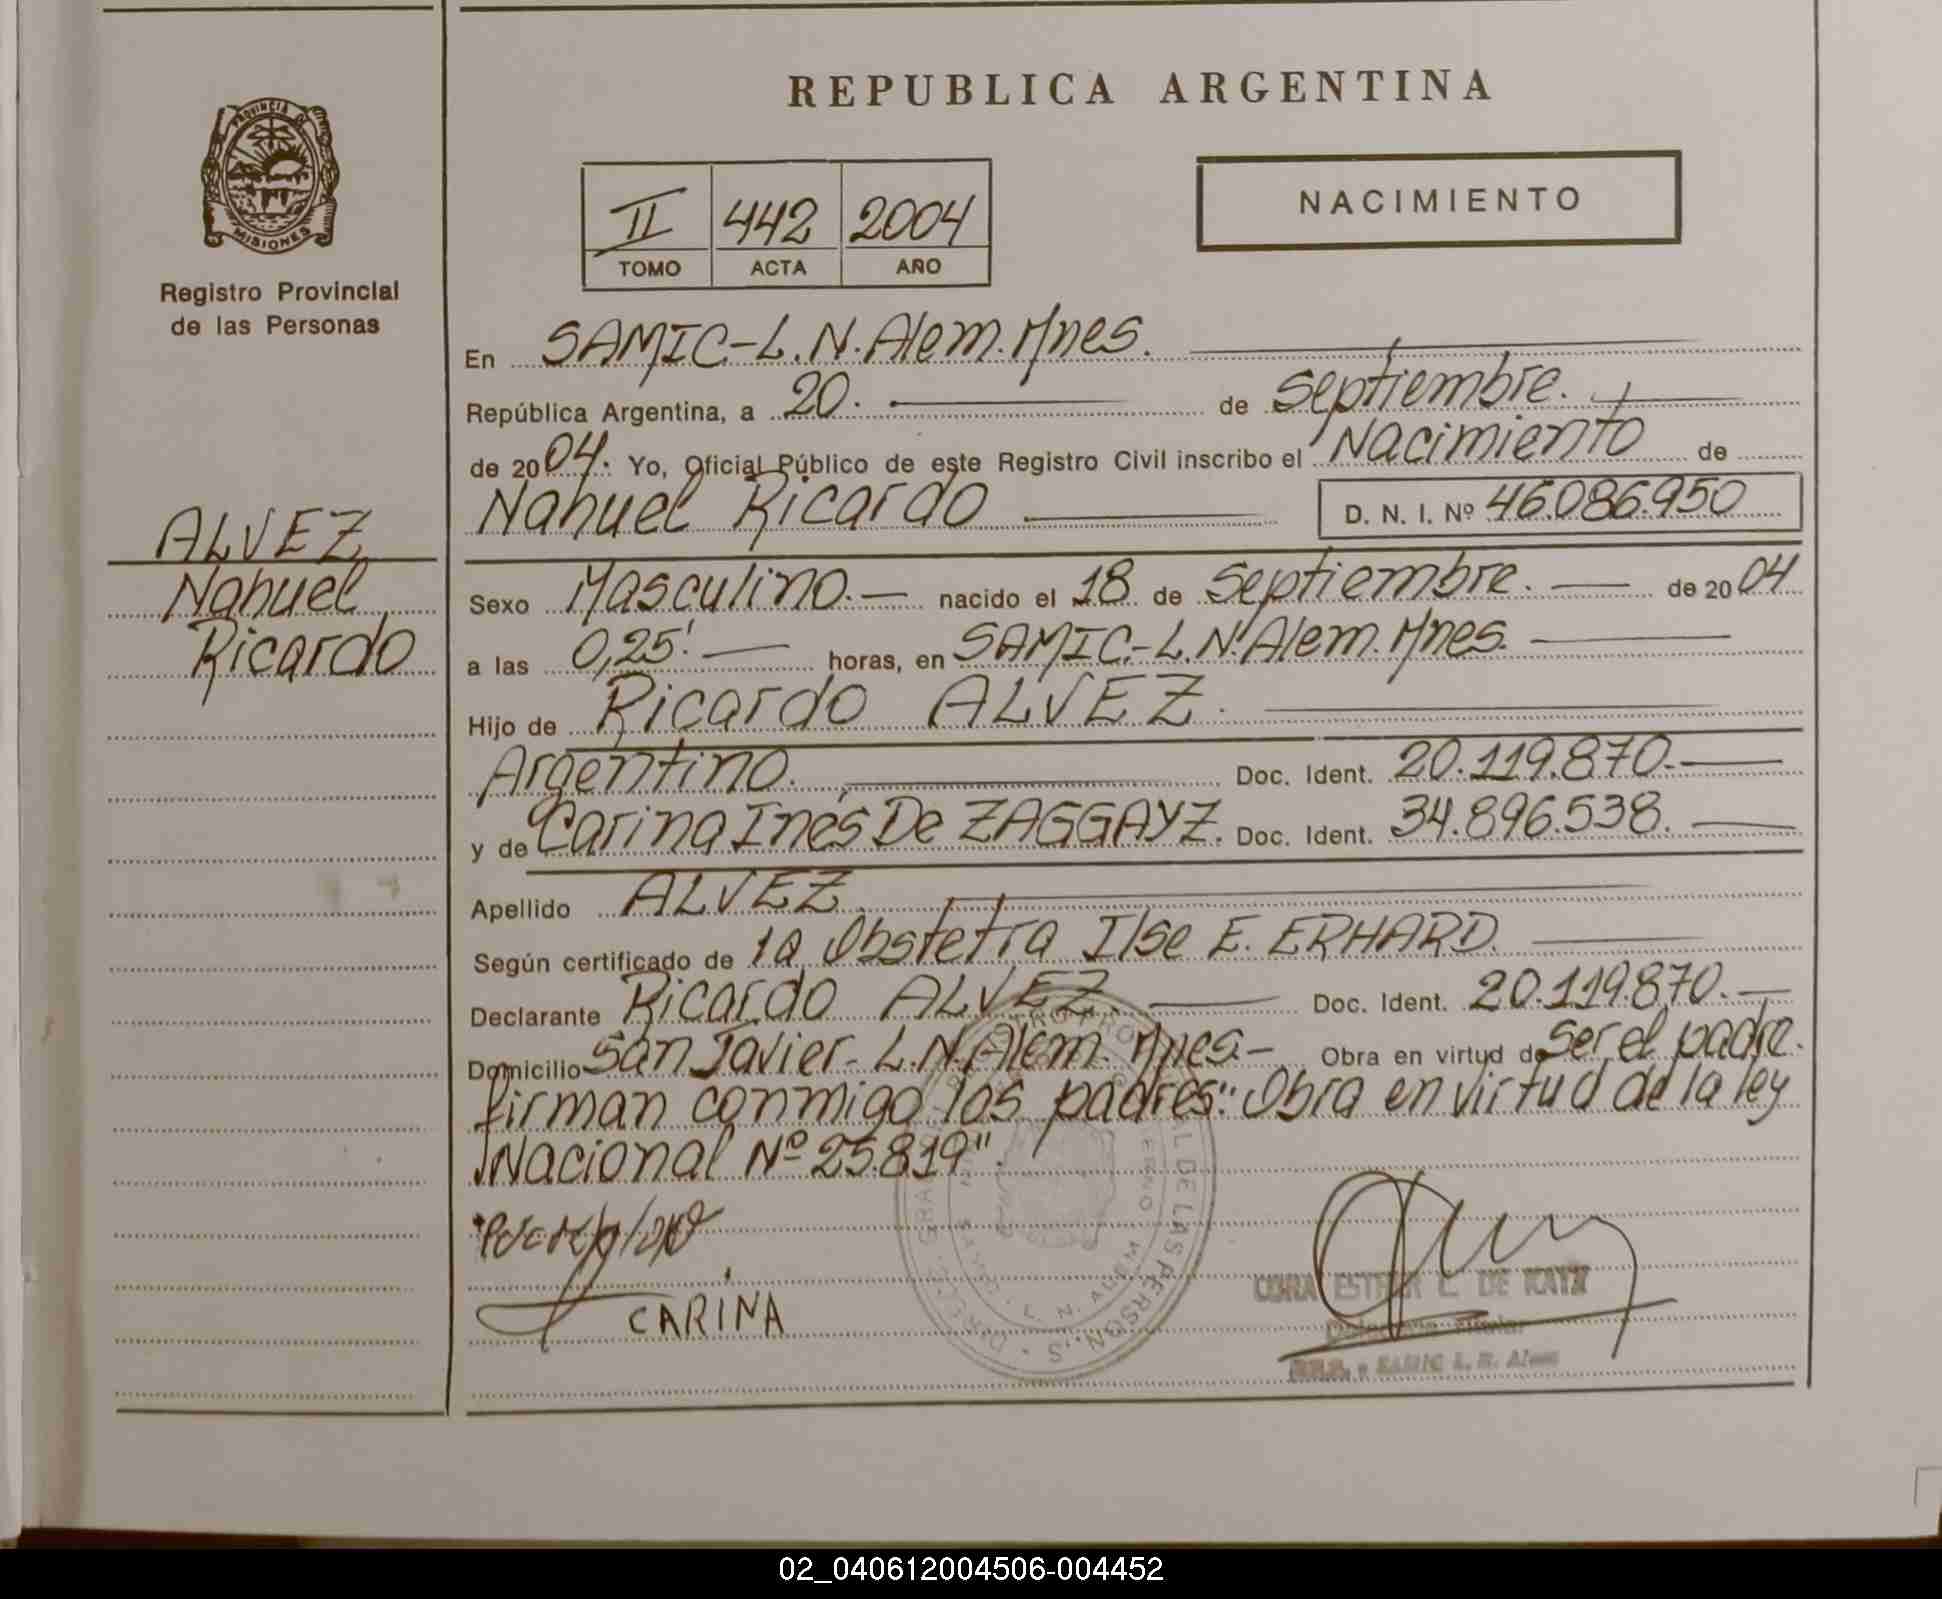 REPUBLICA ARGENTINA
PROVINCIA DE
MISIONES
Registro Provincial
de las Personas
II 442 2004
TOMO ACTA AÑO
NACIMIENTO
En SAMIC-L.N.Alem.Mnes.
República Argentina, a 20. de septiembre.
de 2004. Yo, Oficial Público de este Registro Civil inscribo el Nacimiento de
Nahuel Ricardo D. N. I. Nº 46.086.950
ALVEZ
Nahuel
Ricardo
Sexo Masculino. nacido el 18 de septiembre. de 2004
a las 0,25'. horas, en SAMIC.-L.N.Alem.Mnes.
Hijo de Ricardo ALVEZ.
Argentino. Doc. Ident. 20.119.870.
y de Carina Inés De ZAGGAYZ. Doc. Ident. 34.896.538.
Apellido ALVEZ
Según certificado de la Obstetra Ilse E. ERHARD.
Declarante Ricardo ALVEZ Doc. Ident. 20.119.870.
Domicilio San Javier-L.N.Alem. Mnes.- Obra en virtud de ser el padre.
firman conmigo los padres:"Obra en virtud de la ley
Nacional Nº 25.819".
CARINA
DE LAS PERSON
L. N. ALEM
ESTHER L. DE KATZ
SAMIC L. N. Alem
02_040612004506-004452